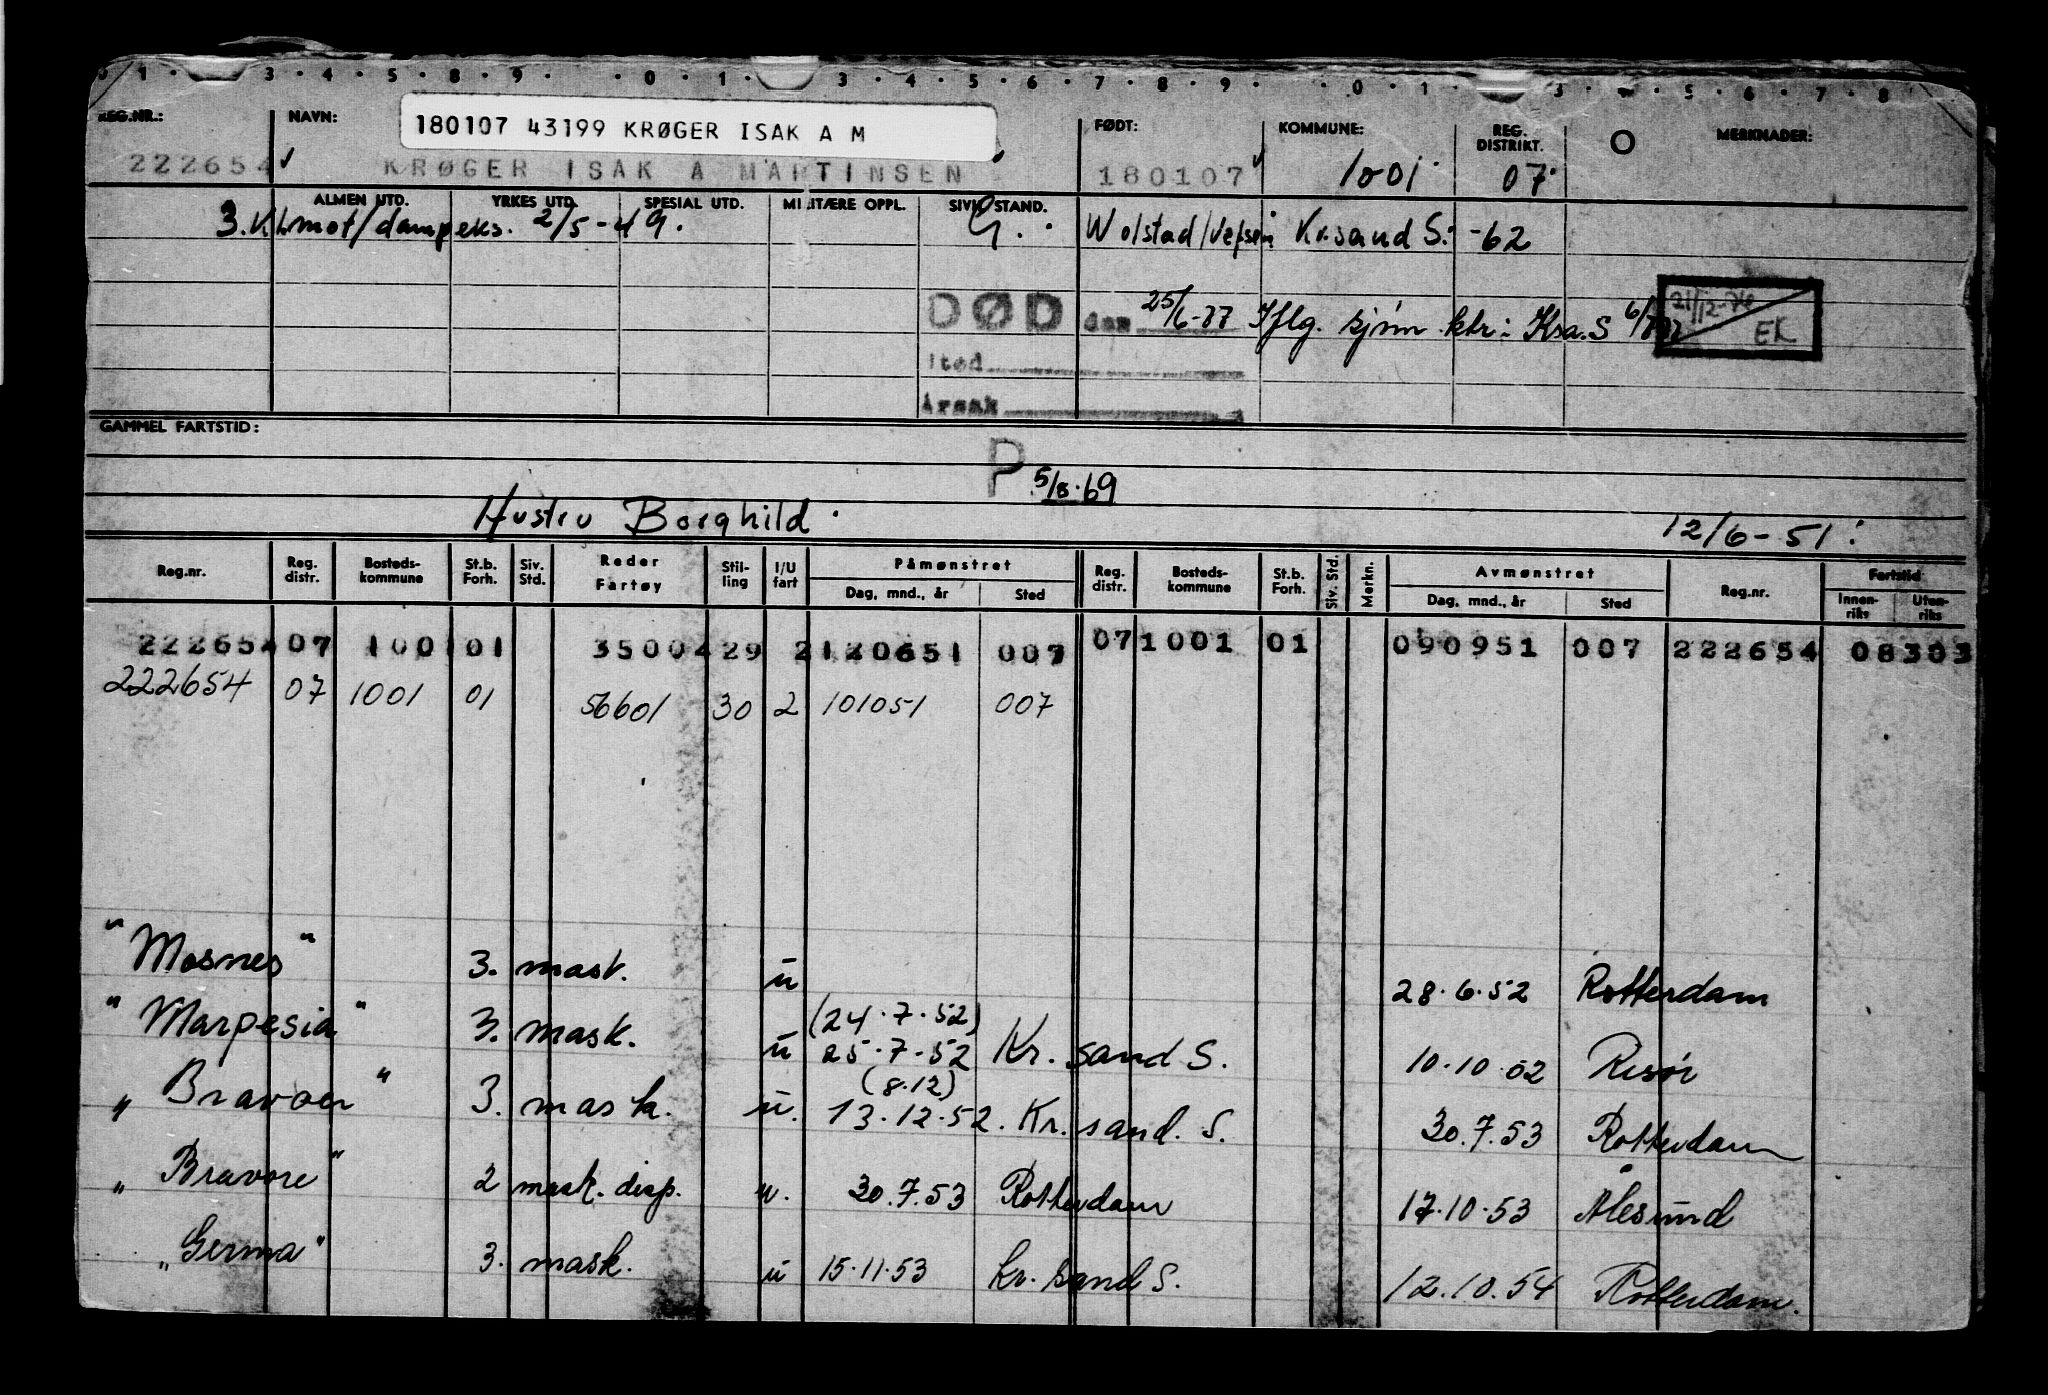 0 1 · 3 · 4 · 5 · 8 · 9 · · 0 · 1 · 3 · 4 · 5 · 6 · 7 · 8 · 9 · · 0 · 1 · 3 · 4 · 5 · 6 · 7 · 8
REG.NR.: NAVN: FØDT: KOMMUNE: REG. DISTRIKT. MERKNADER:
180107 43199 KRØGER ISAK A M
222654 KRØGER ISAK A MARTINSEN 180107 1001 07
ALMEN UTD. YRKES UTD. SPESIAL UTD. MILITÆRE OPPL. SIVILSTAND.
3. kl. mot/dampeks. 2/5-49. G. Wolstad/Vefsn Kr.sand S. -62
DØD den 25/6-77 Iflg. sjøm. ktr: Kra.S 21/12-76 EK
Sted
Årsak
GAMMEL FARTSTID:
P 5/8-69
Hustru Borghild. 12/6-51.
Reg.nr. Reg. distr. Bosteds-kommune St.b. Forh. Siv. Std. Reder Fartøy Stil-ling I/U fart Påmønstret Dag, mnd., år Sted Reg. distr. Bosteds-kommune St.b. Forh. Siv. Std. Merkn. Avmønstret Dag, mnd., år Sted Reg.nr. Fartstid Innen-riks Uten-riks
222654 07 1001 01 35004 29 2 120651 007 07 1001 01 090951 007 222654 08303
222654 07 1001 01 56601 30 2 101051 007
"Mosnes" 3. mask. u 28.6.52 Rotterdam
"Marpesia" 3. mask. u (24.7.52) 25.7.52 Kr.sand S. 10.10.52 Risør
"Bravoer" 3. mask. u. (8.12) 13.12.52. Kr.sand. S. 30.7.53 Rotterdam
"Bravore" 2 mask. disp. u. 30.7.53 Rotterdam 17.10.53 Ålesund
"Germa" 3. mask. u 15.11.53 Kr.sand S. 12.10.54 Rotterdam.